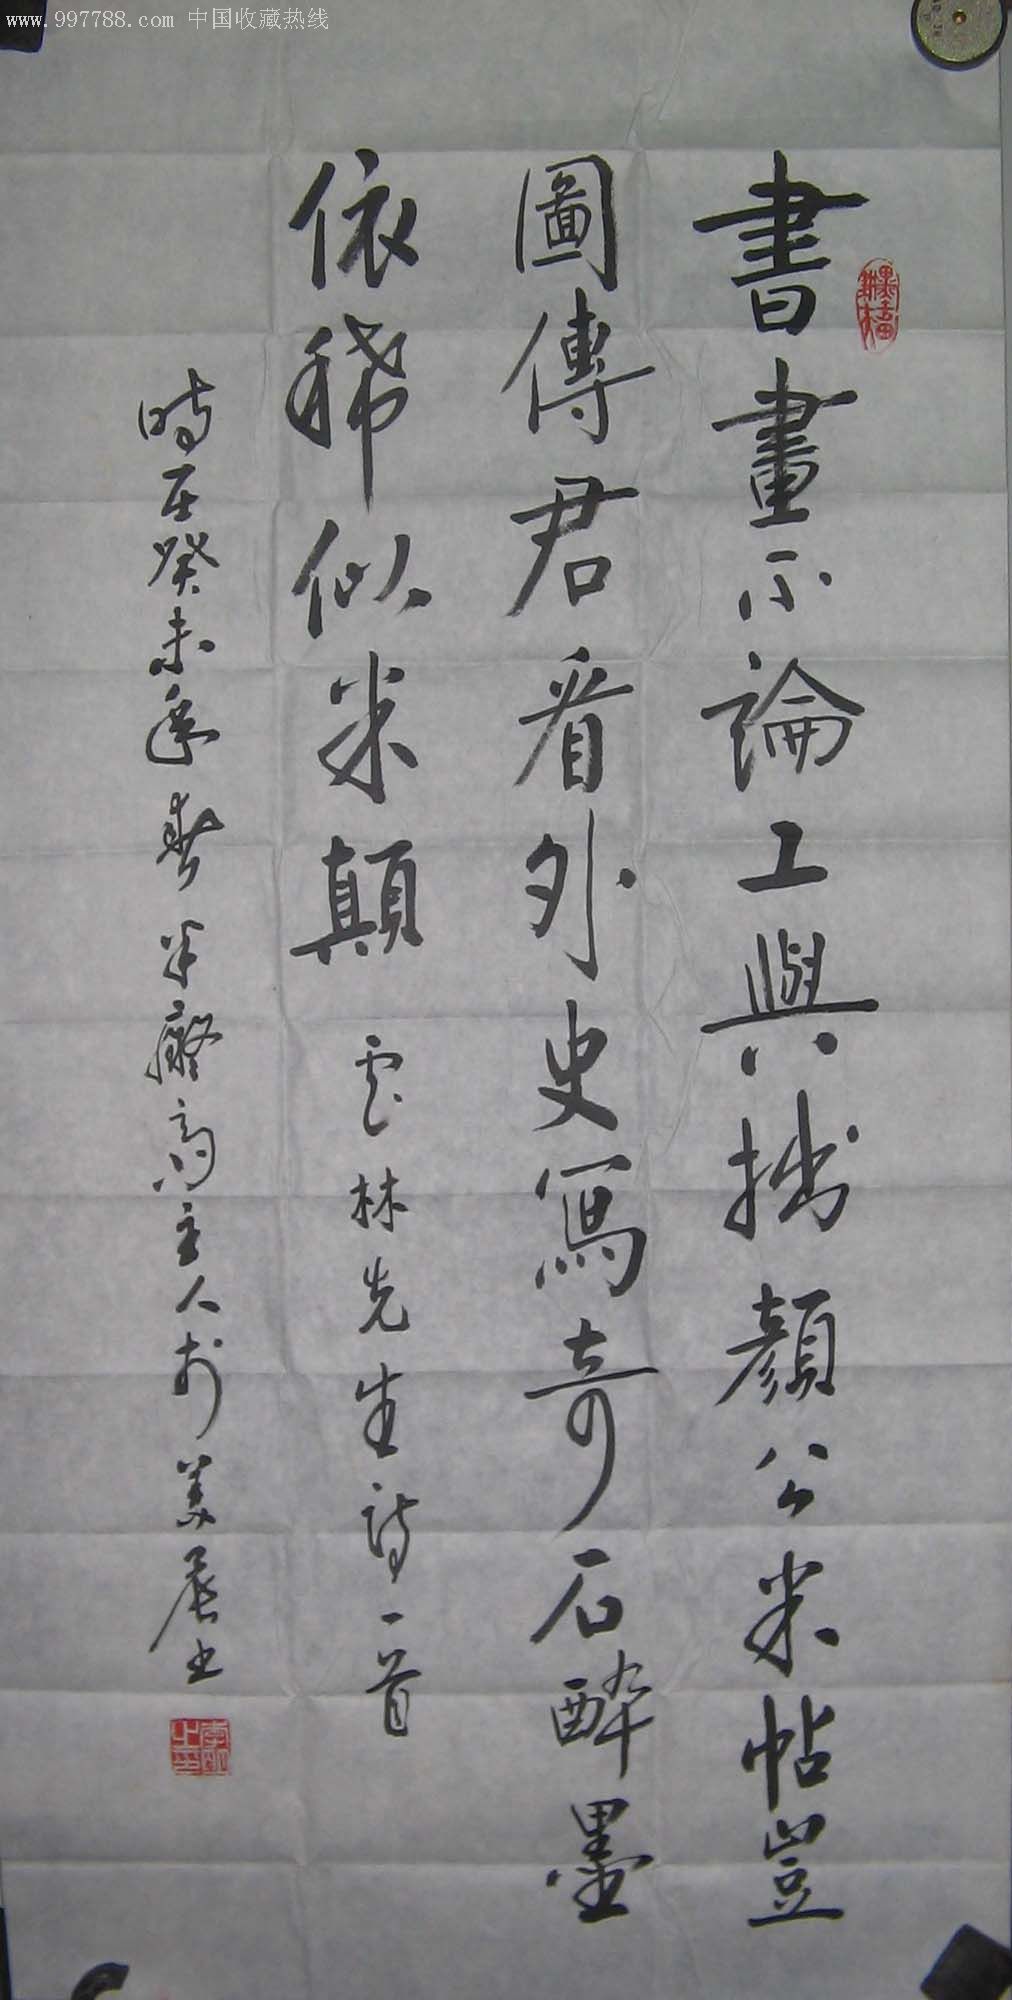 www.997788.com 中国收藏热线
書畫不論工與拙顏公米帖豈
圖傳君看外史寫奇石醉墨
依稀似米顛 雲林先生詩一首
時在癸未年春半癡齋主人於美展書